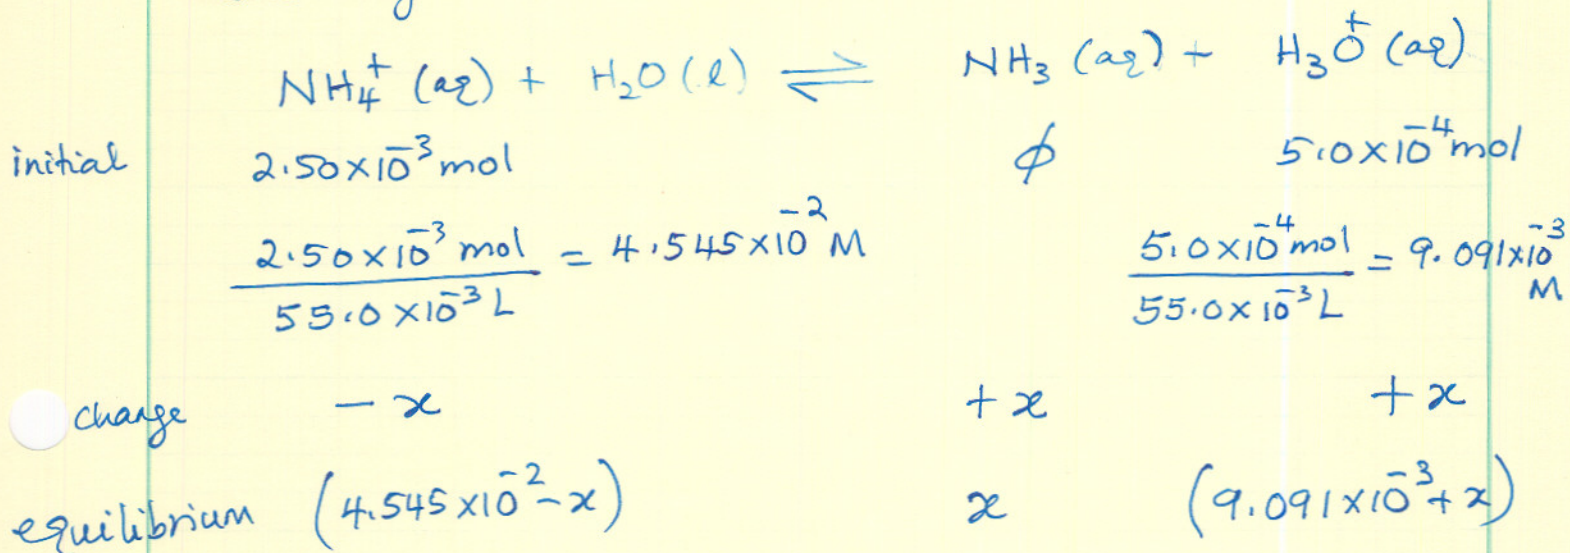 NH₄⁺ (aq) + H₂O (l) ⇌ NH₃ (aq) + H₃O⁺ (aq)
initial 2.50×10⁻³ mol ϕ 5.0×10⁻⁴ mol
2.50×10⁻³ mol / 55.0×10⁻³ L = 4.545×10⁻² M 5.0×10⁻⁴ mol / 55.0×10⁻³ L = 9.091×10⁻³ M
change −x +x +x
equilibrium (4.545×10⁻²−x) x (9.091×10⁻³+x)